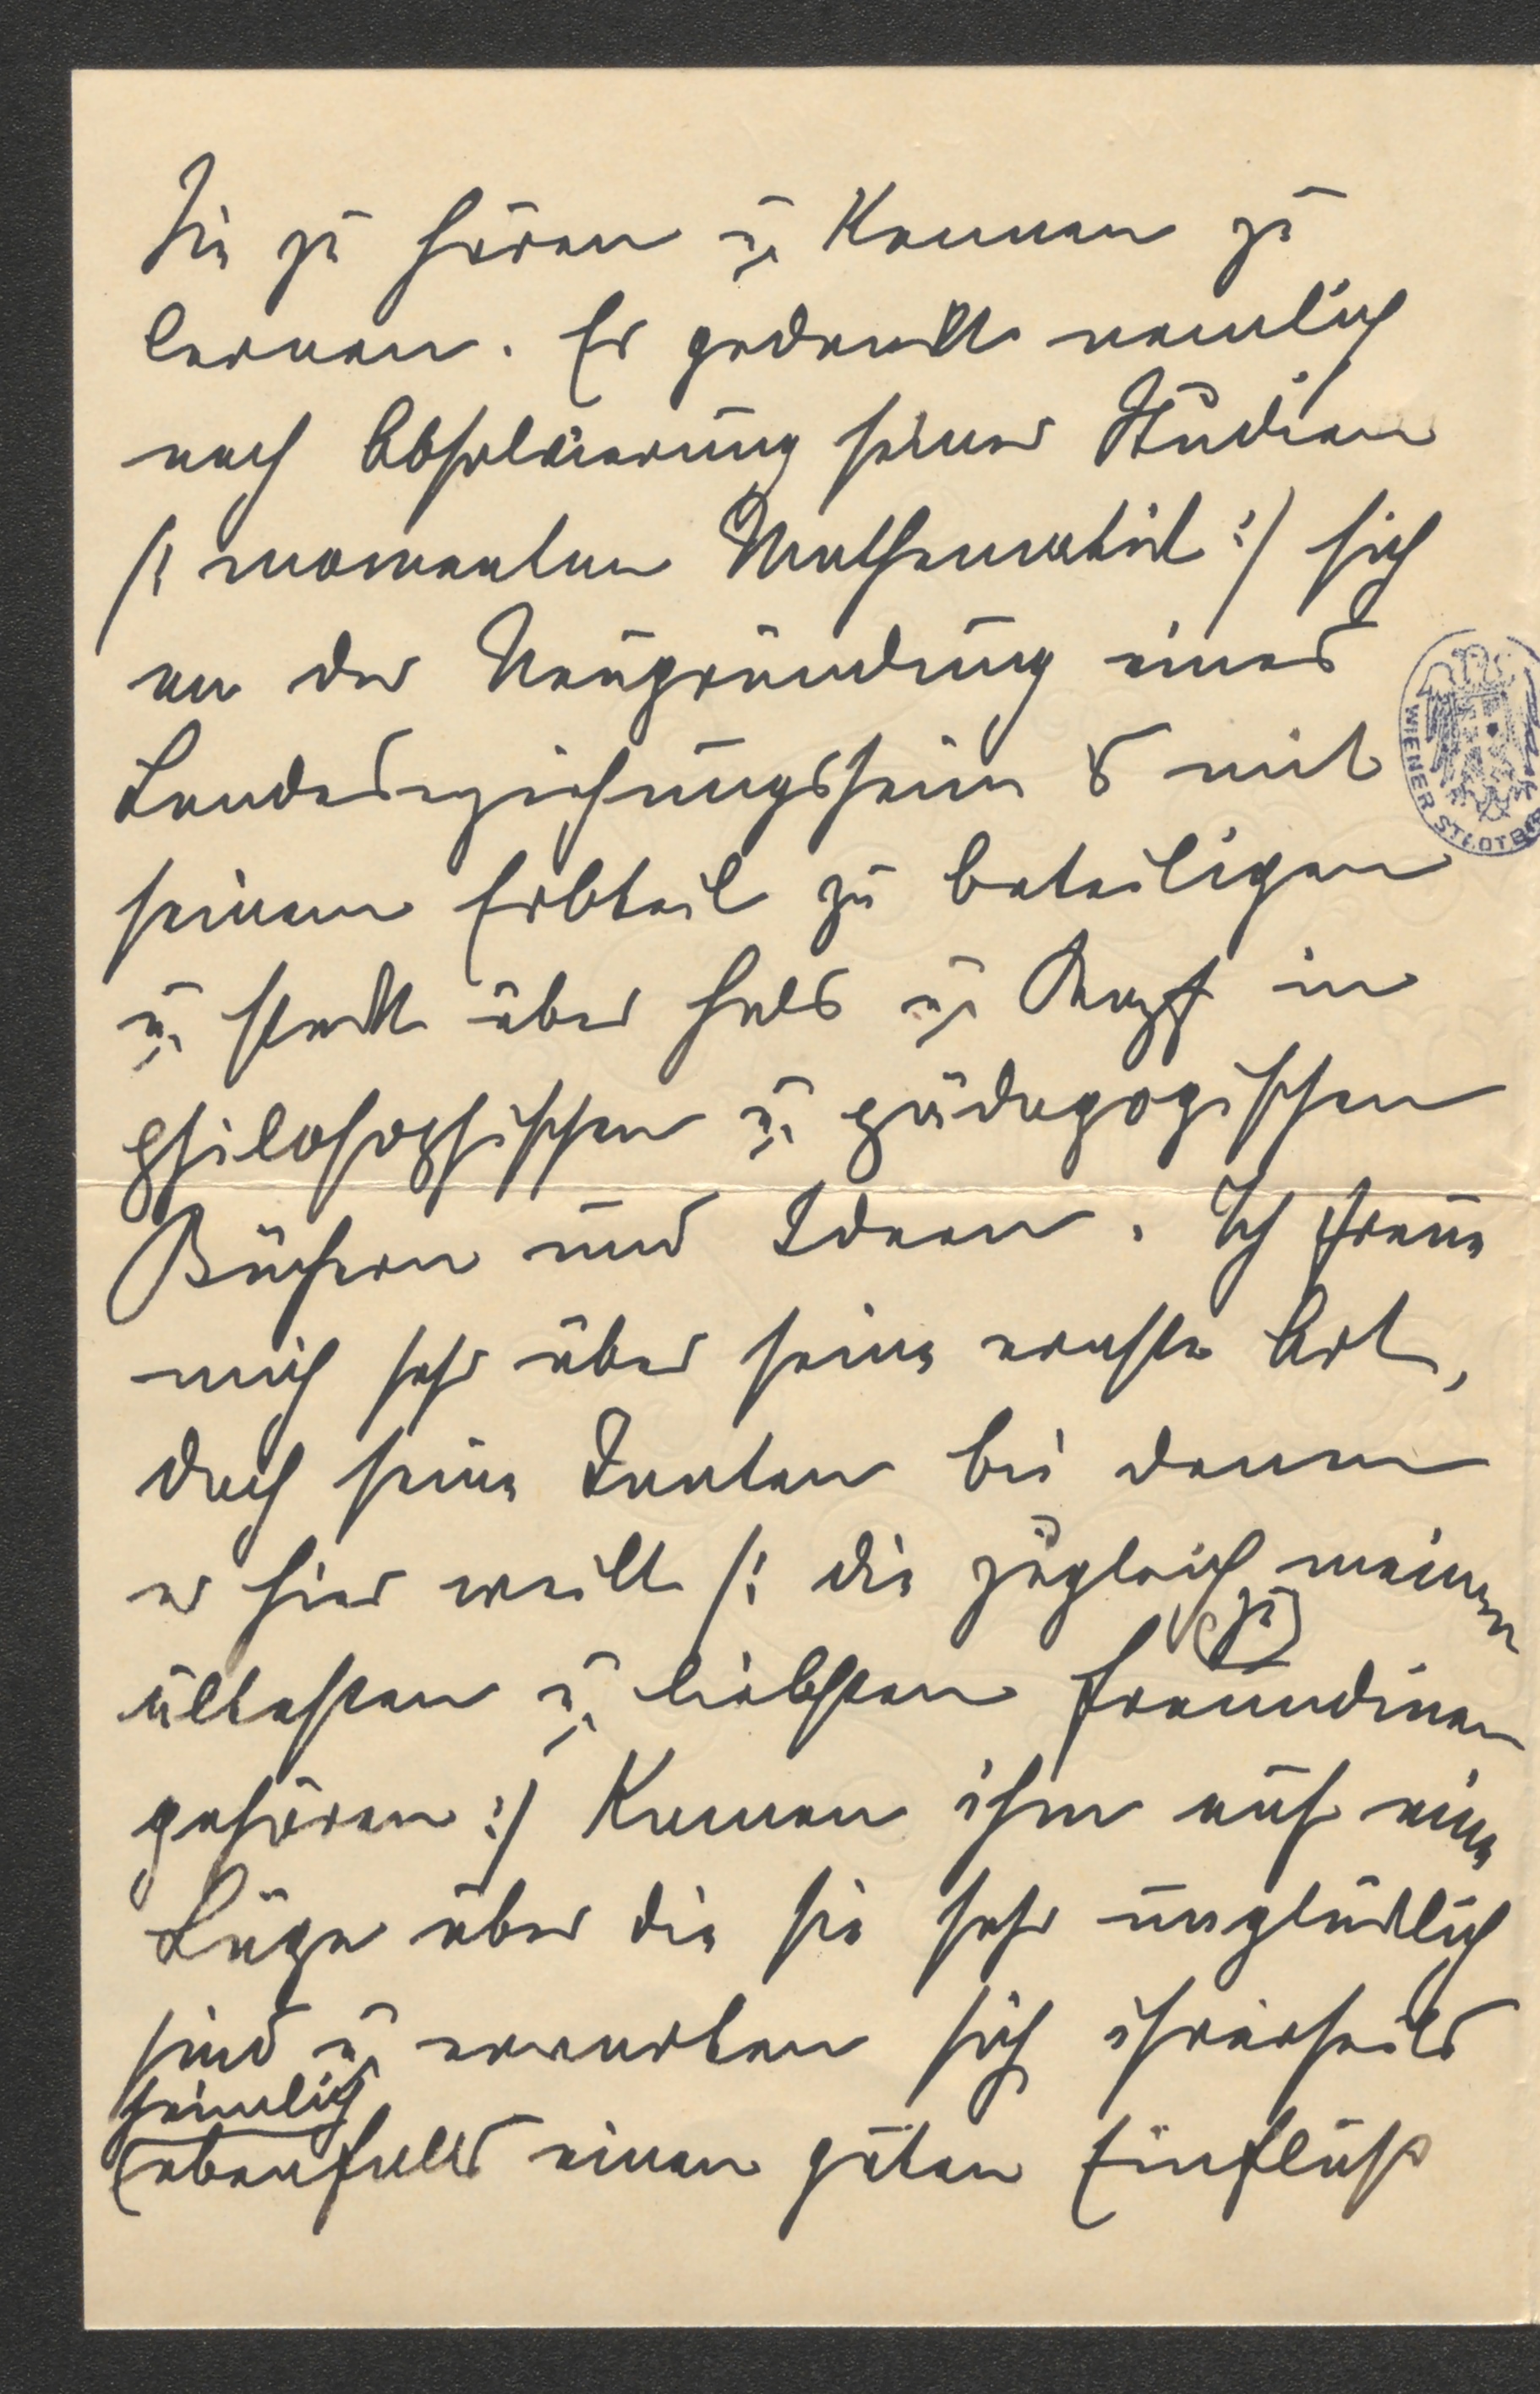 Sie zu hören u. Kennen zu
lernen. Er gedenkt nämlich
nach Absolvierung seiner Studien
/: momentan Mathematik :/ sich
an der Neugründung eines
Landeserziehungsheim s mit
seinem Erbteil zu beteiligen
u. steckt über Hals u. Kopf in
philosophischen u. pädagogischen
Büchern und Ideen. Ich freue
mich sehr über seine ernste Art,
doch seine Tanten bei denen
er hier weilt /: die zugleich meinen
ältesten u. liebsten Freundinen
(zu)
gehören :/ Kamen ihm auf eine
Lüge über die sie sehr unglücklich
sind u. erwarten sich ihrerseits
heimlich
(ebenfalls einen guten Einfluß
WIENER STADTB